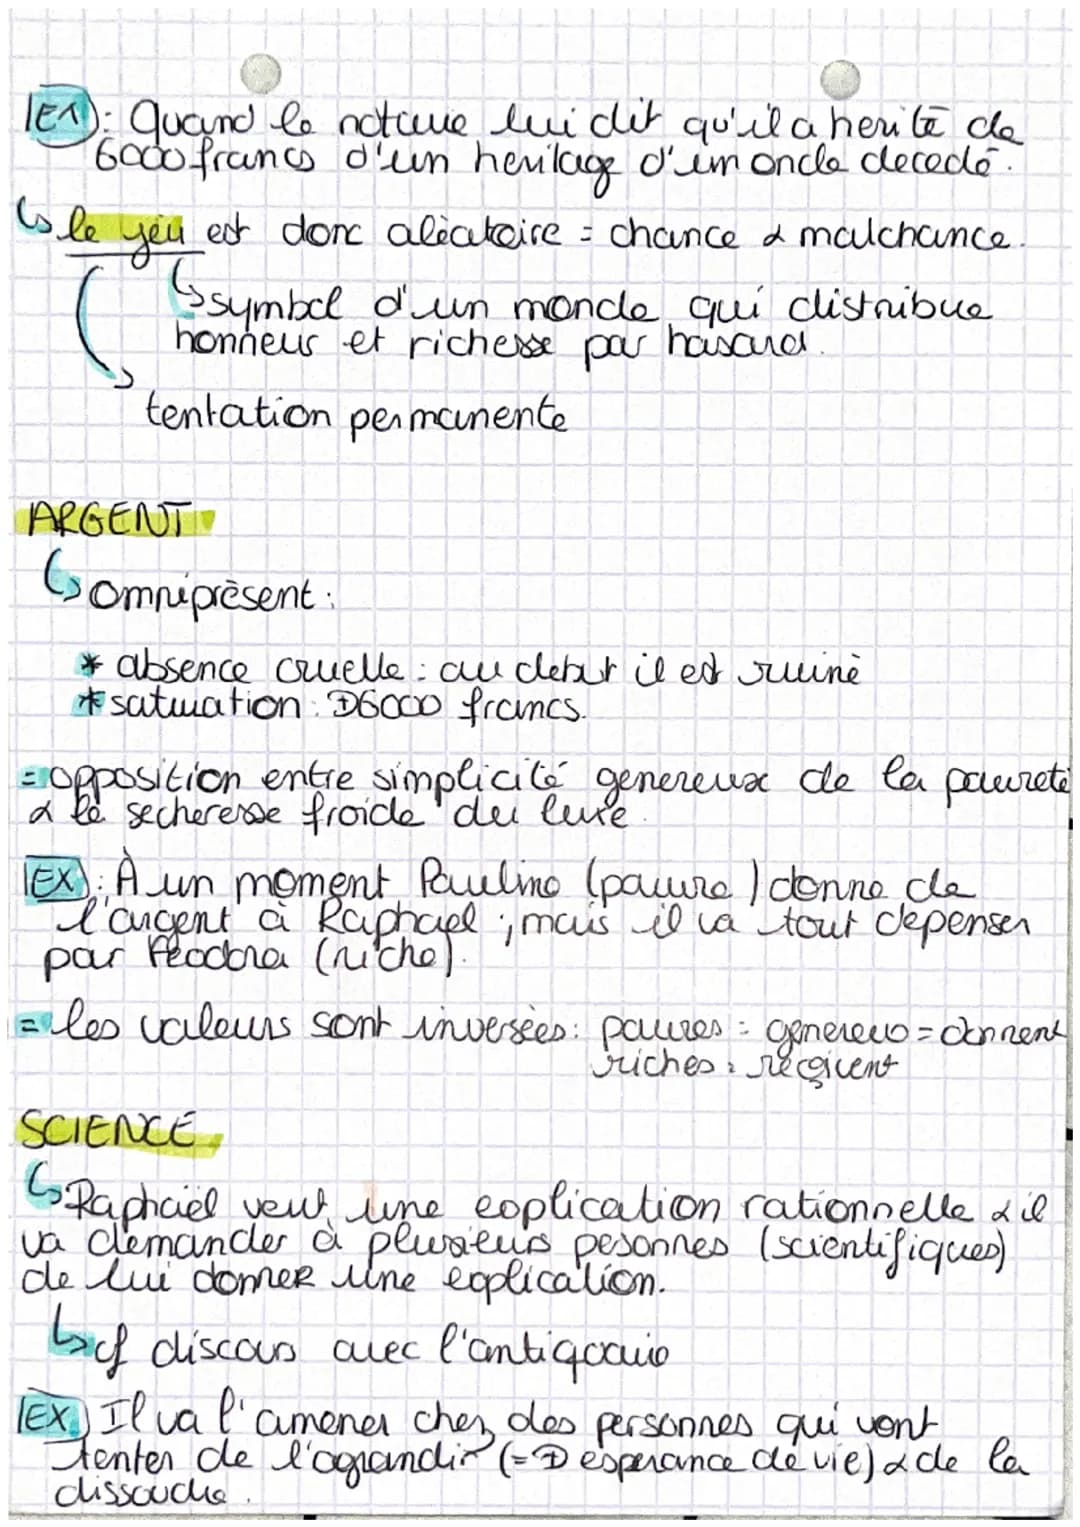 EX): Quand le notaire lui dit qu'il a herité de
6000 francs d'un heritage d'un oncle decedé.
↳ le jeu est donc alèatoire = chance & malchance.
↳ symbol d'un monde qui distribue
honneur et richesse par hasard.
↳ tentation permanente
ARGENT
↳ omniprèsent :
* absence cruelle : au debut il est ruinè
* saturation : 6000 francs.
= opposition entre simplicité genereux de la pauvreté
& la secheresse froide du luxe.
EX): À un moment Pauline (pauvre) donne de
l'argent à Raphael ; mais il va tout depenser
par Féodora (riche).
= les valeurs sont inversèes : pauvres = genereux = donnent
riches : reçoivent
SCIENCE
↳ Raphaël veut une explication rationnelle & il
va demander à plusieurs pesonnes (scientifiques)
de lui donner une explication.
↳ cf discours avec l'antiquaire
EX) Il va l'amener chez des personnes qui vont
tenter de l'agrandir (= esperance de vie) & de la
dissoudre.